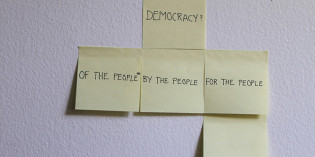 DEMOCRACY?
OF THE PEOPLE* BY THE PEOPLE FOR THE PEOPLE